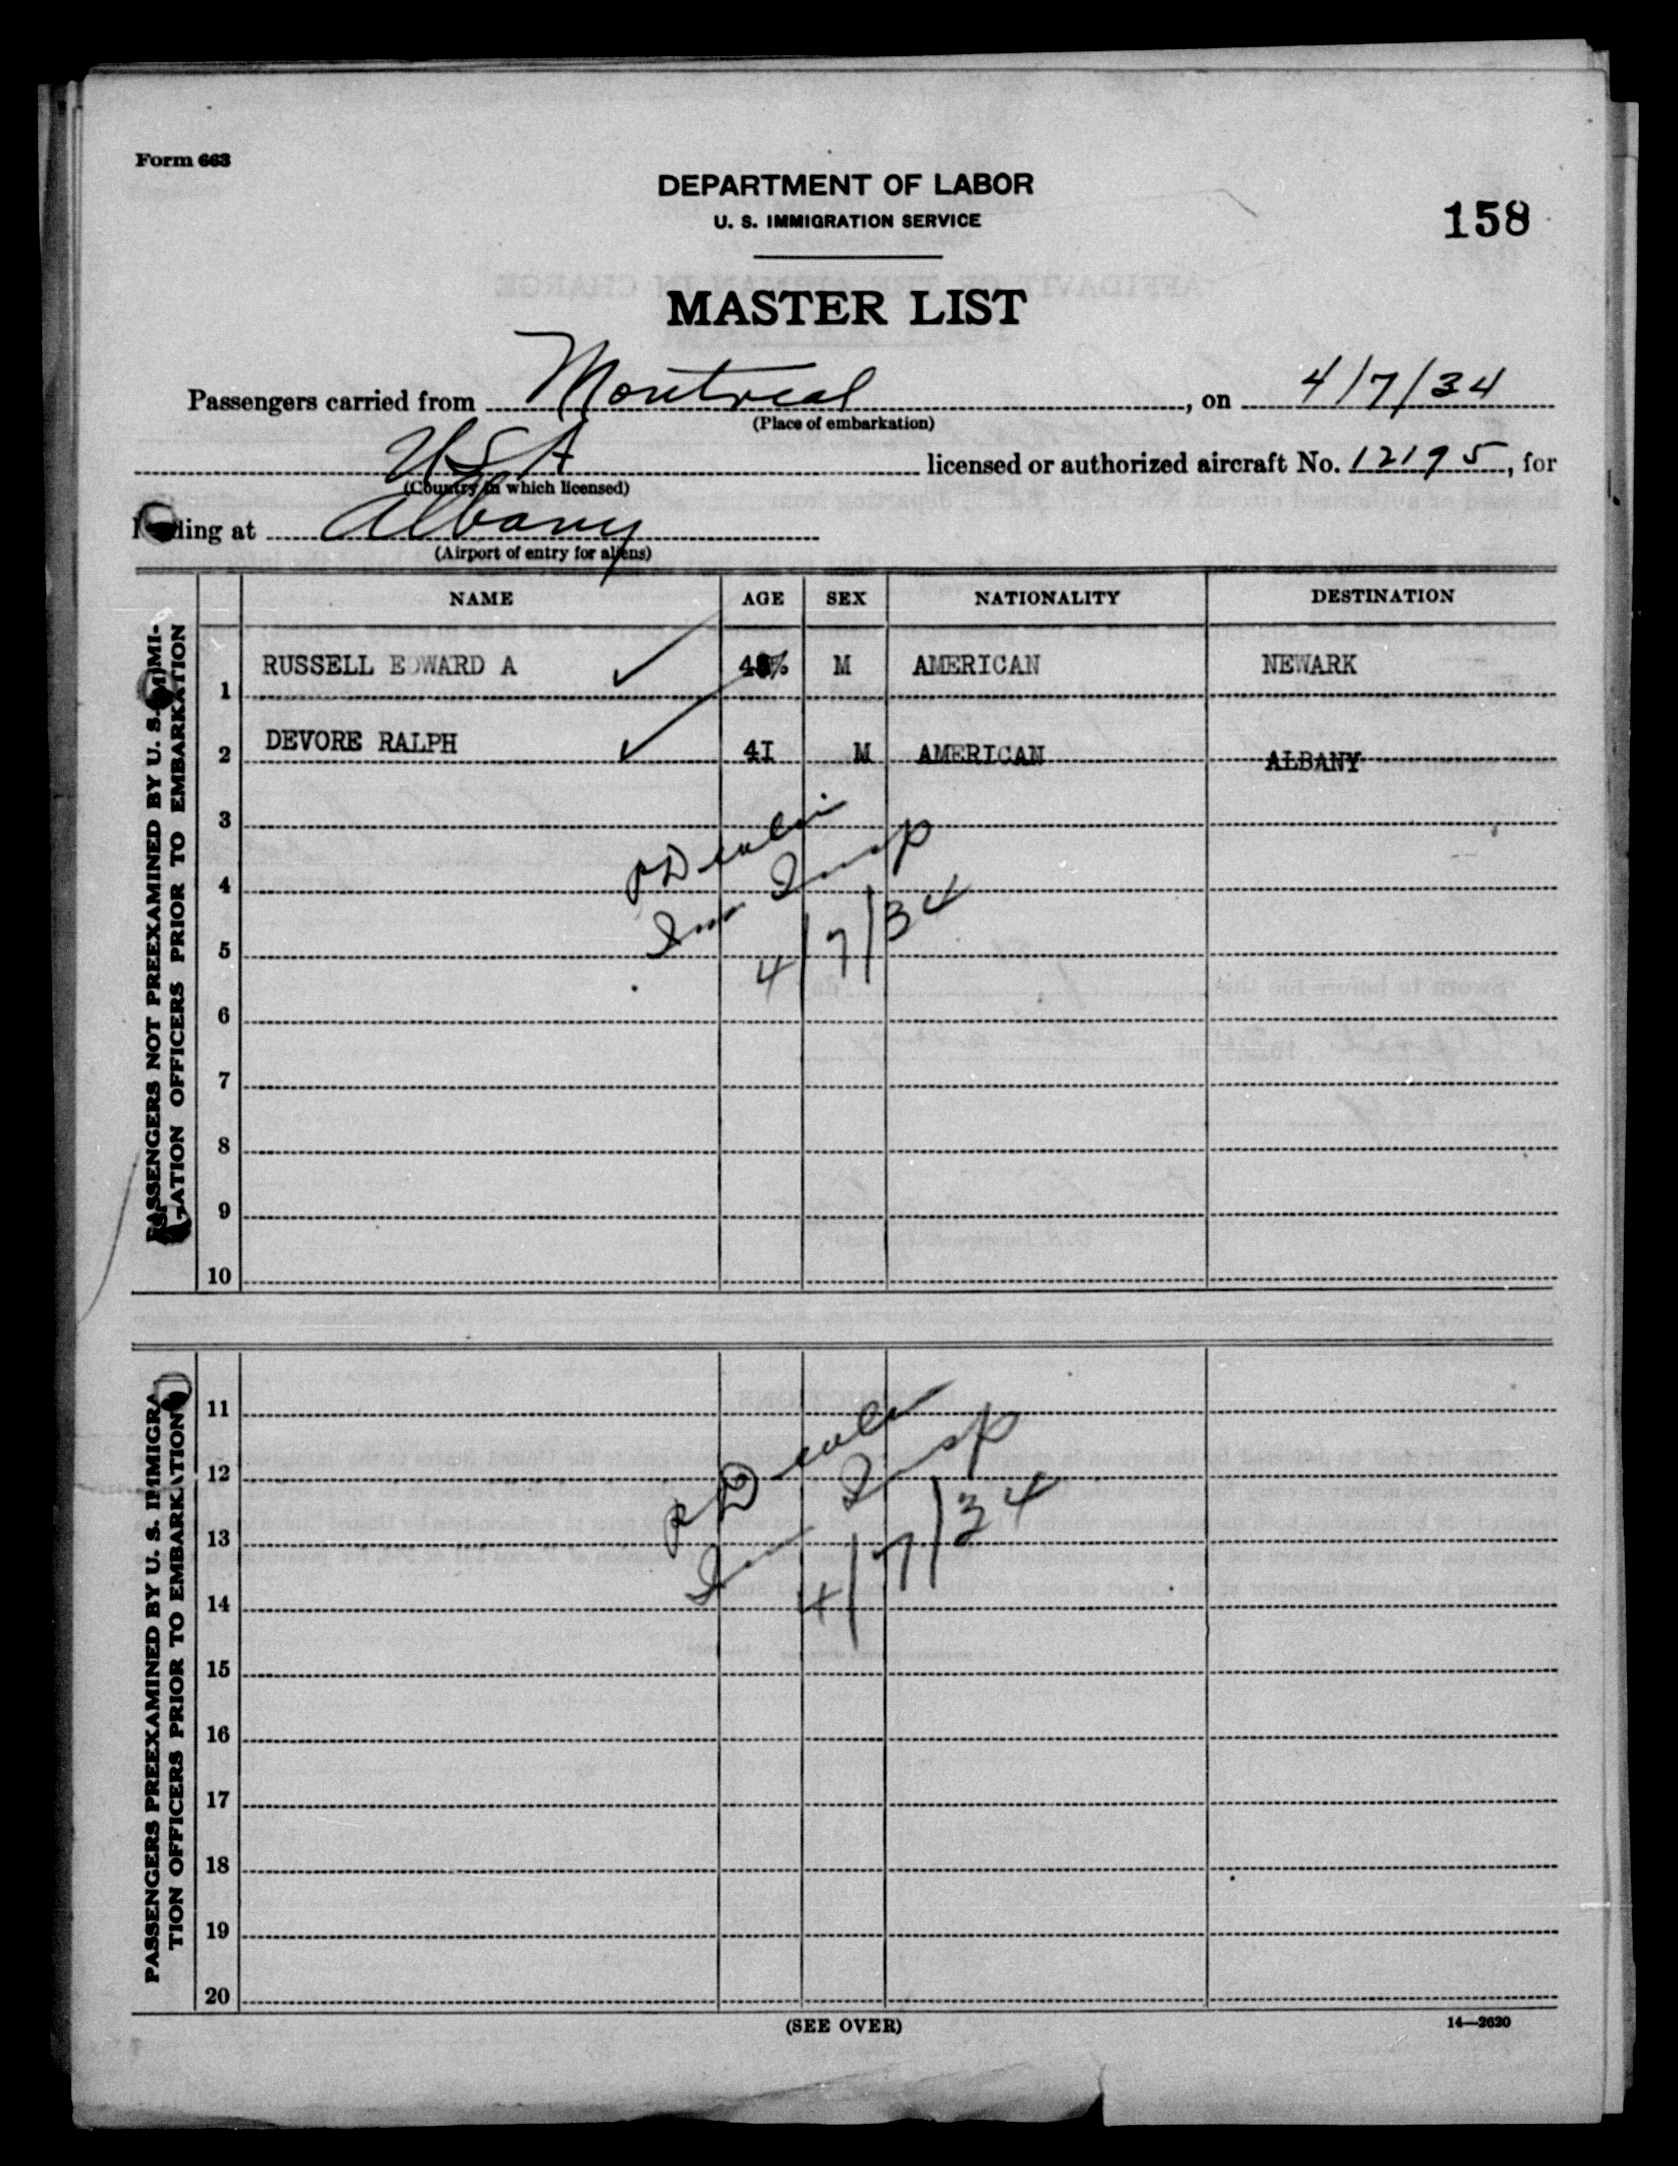 Form 663
DEPARTMENT OF LABOR
U. S. IMMIGRATION SERVICE
158
MASTER LIST
Passengers carried from Montreal, on 4/7/34
(Place of embarkation)
USA licensed or authorized aircraft No. 12195, for
(Country in which licensed)
landing at Albany
(Airport of entry for aliens)
NAME AGE SEX NATIONALITY DESTINATION
PASSENGERS NOT PREEXAMINED BY U. S. IMMI-
GRATION OFFICERS PRIOR TO EMBARKATION
1 RUSSELL EDWARD A M AMERICAN NEWARK
2 DEVORE RALPH 41 M AMERICAN ALBANY
3
4
Imm Insp
5
4/7/34
6
7
8
9
10
PASSENGERS PREEXAMINED BY U. S. IMMIGRA-
TION OFFICERS PRIOR TO EMBARKATION
11
12
13
Imm Insp
14
4/7/34
15
16
17
18
19
20
(SEE OVER)
14—2620